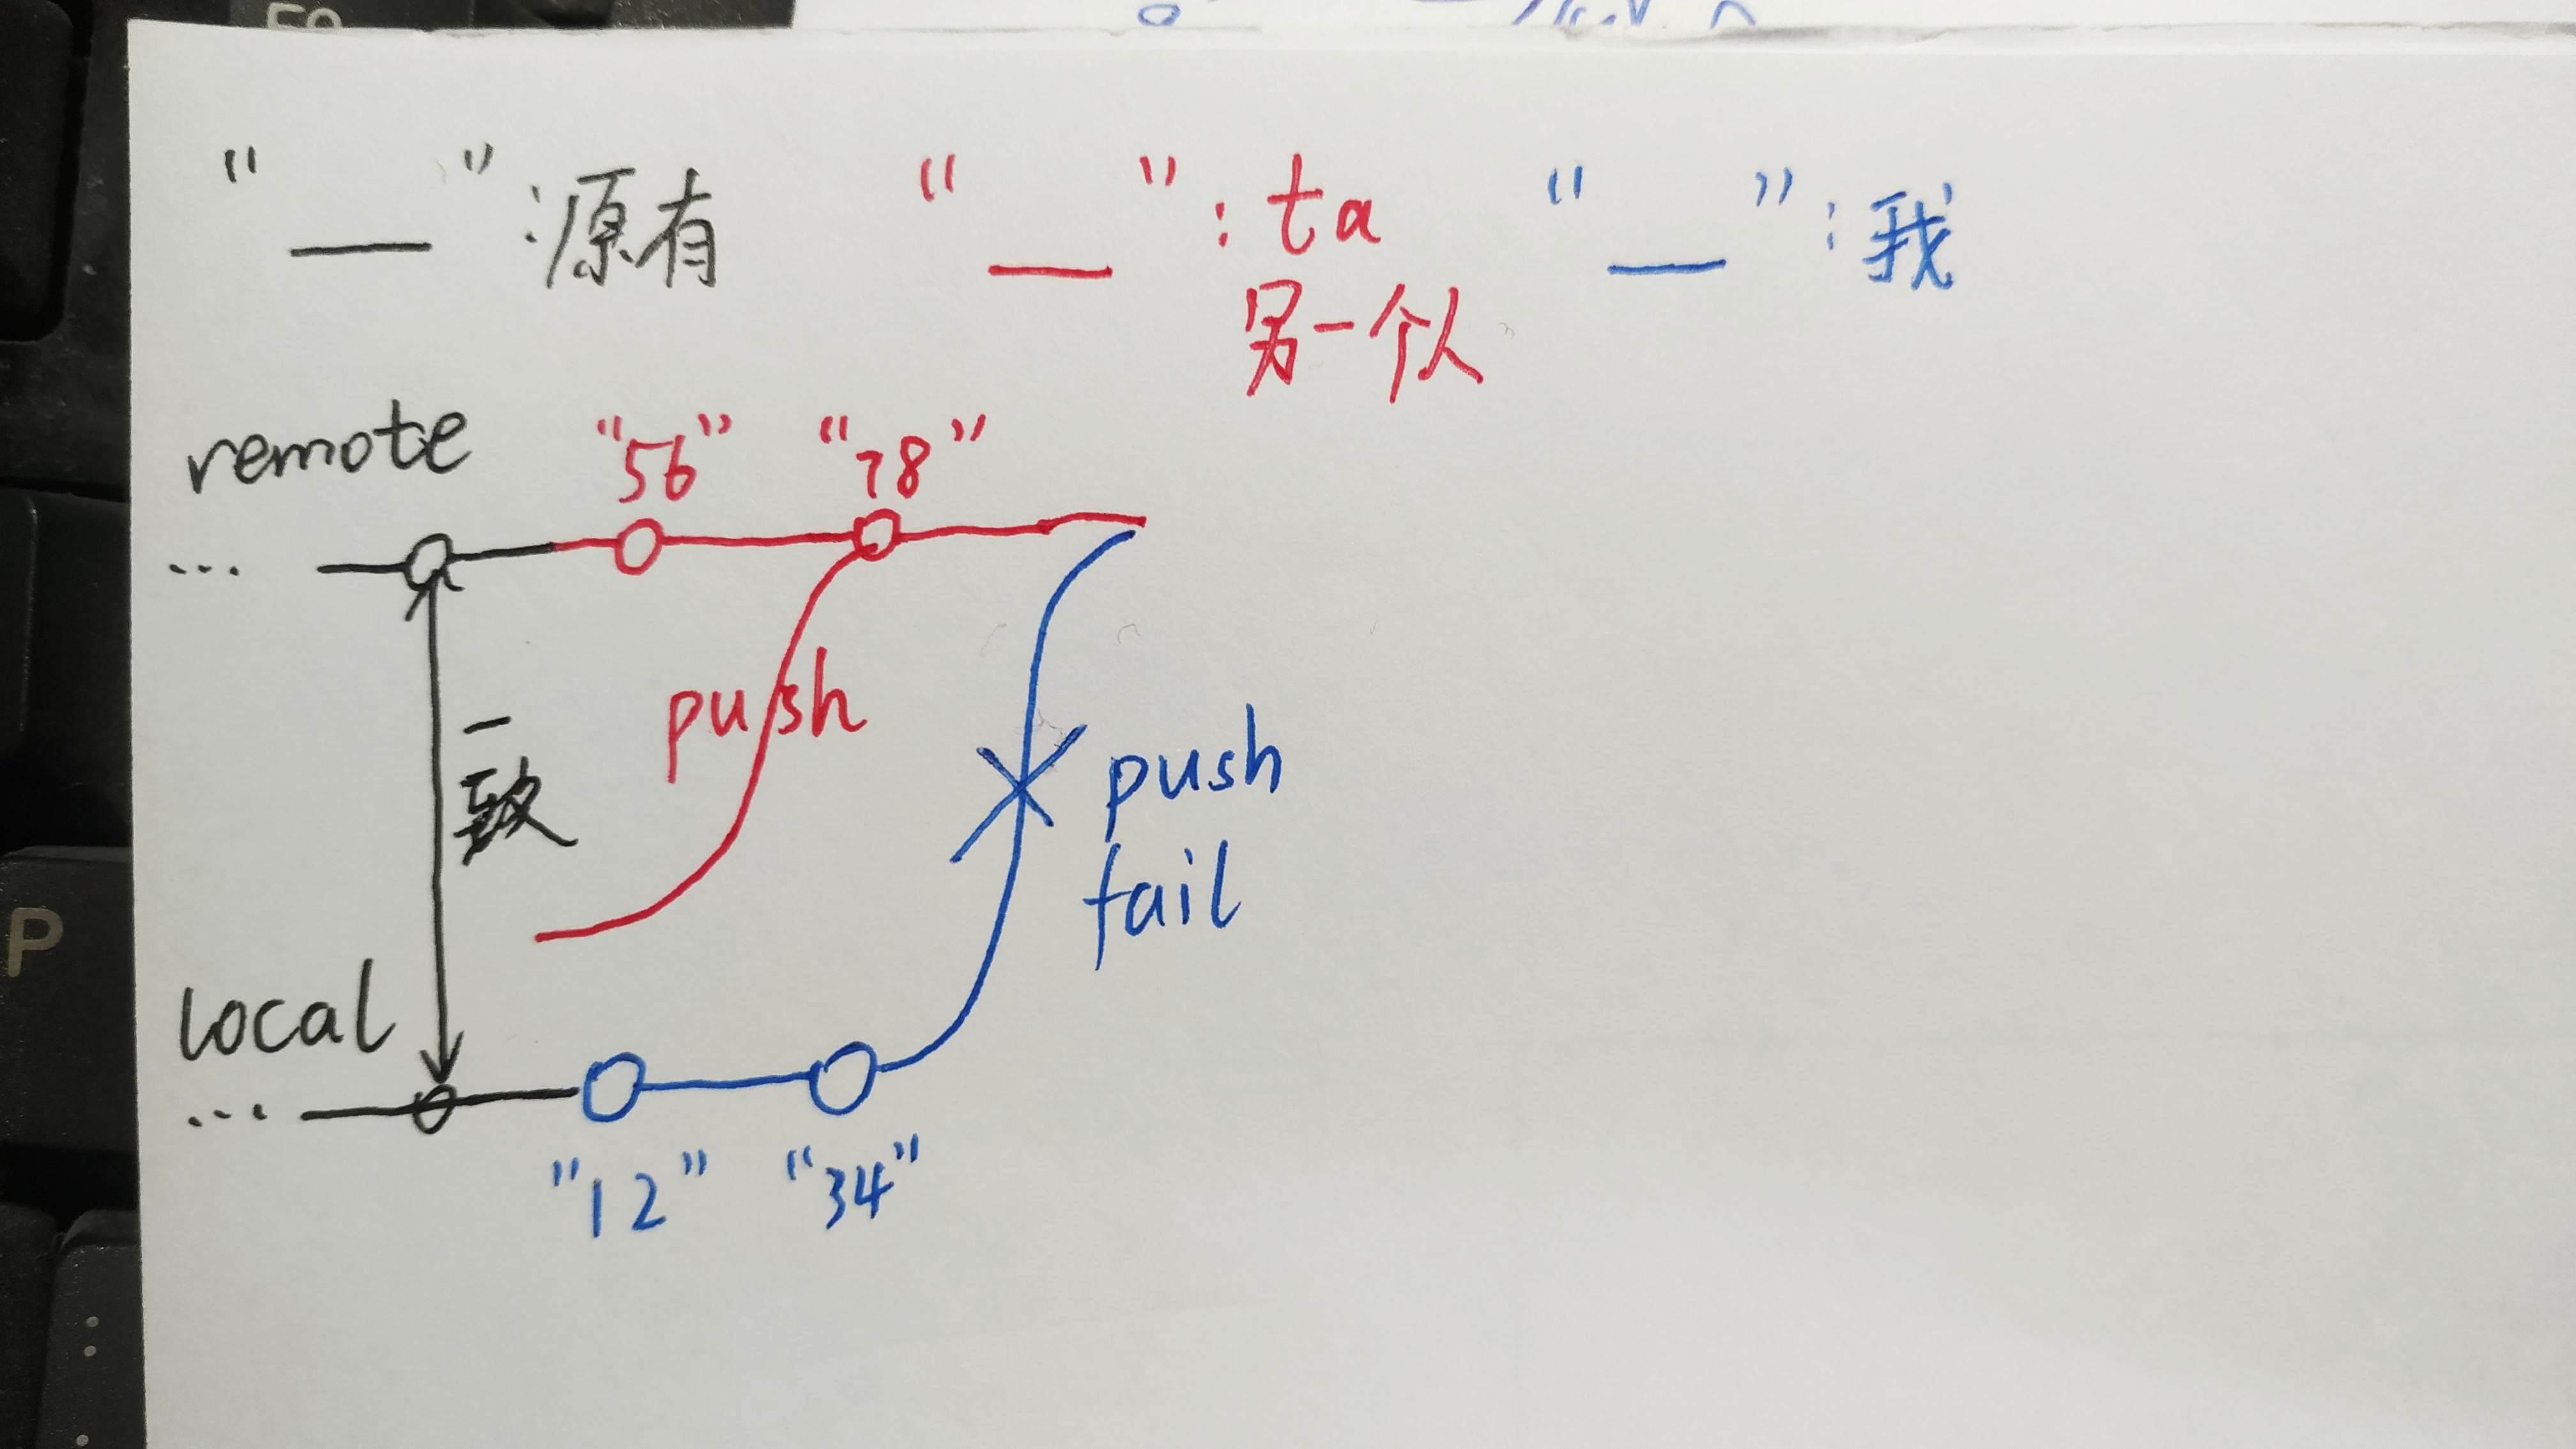 “ — ”：原有
“ — ”：ta
另一个人
“ — ”：我
remote
“56” “78”
...
一致
push
push
fail
local
...
“12” “34”
P